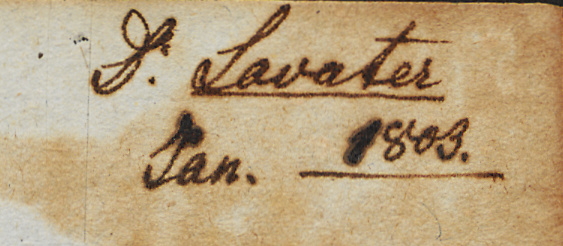 S. Lavater
Jan. 1803.